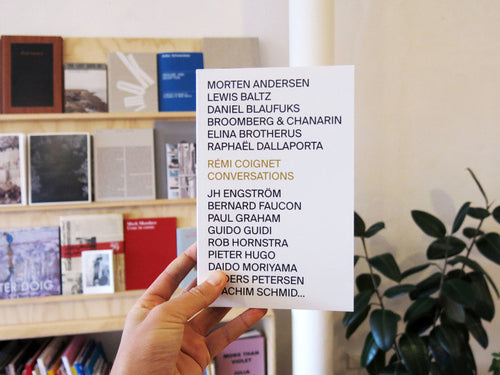 MORTEN ANDERSEN
LEWIS BALTZ
DANIEL BLAUFUKS
BROOMBERG & CHANARIN
ELINA BROTHERUS
RAPHAËL DALLAPORTA
RÉMI COIGNET
CONVERSATIONS
JH ENGSTRÖM
BERNARD FAUCON
PAUL GRAHAM
GUIDO GUIDI
ROB HORNSTRA
PIETER HUGO
DAIDO MORIYAMA
DERS PETERSEN
ACHIM SCHMID...
PETER DOIG
MORE THAN
VIOLET
JULIA